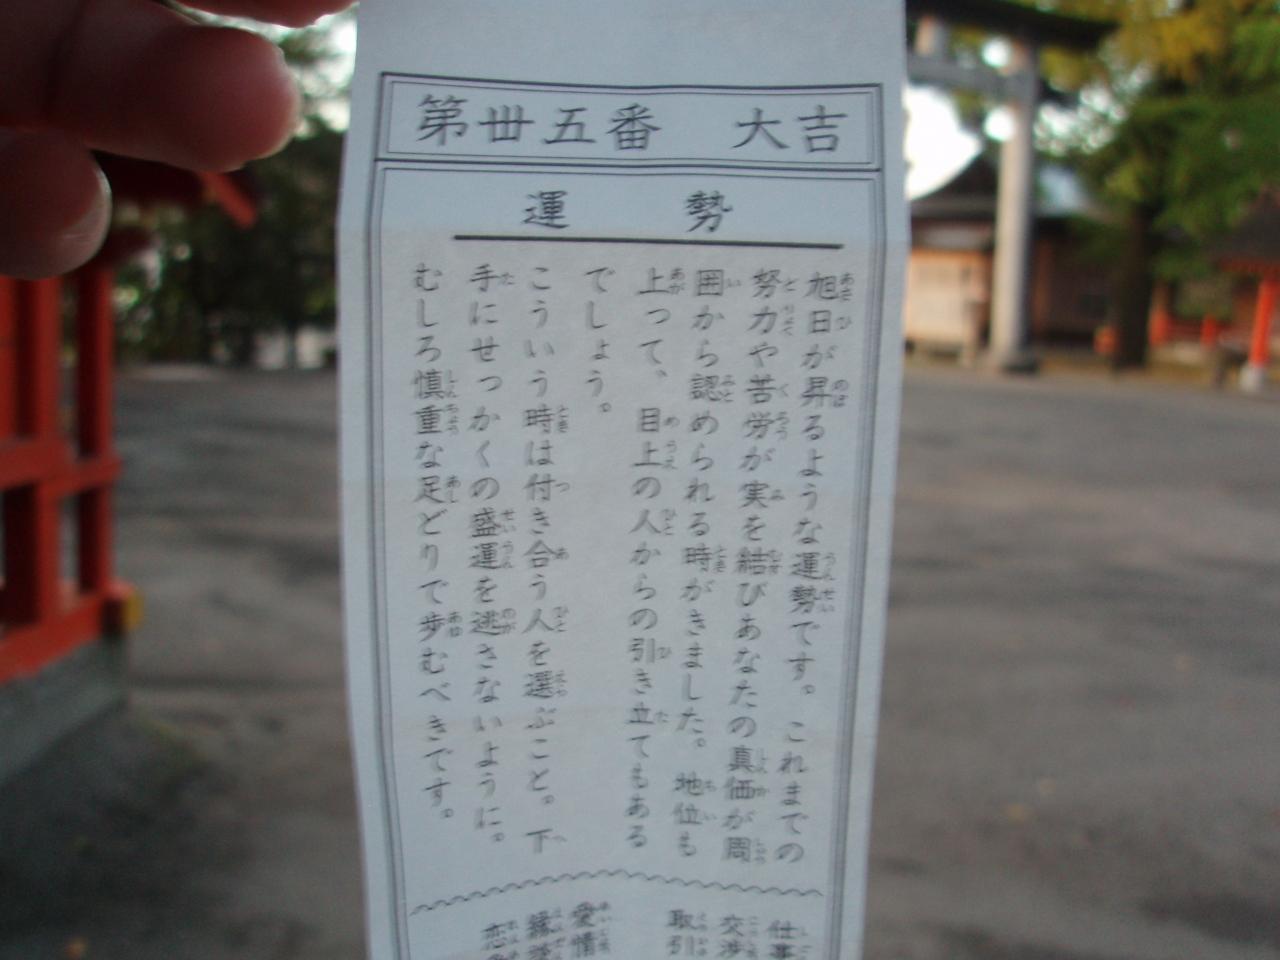 第丗五番 大吉
運勢
旭日が昇るような運勢です。これまでの
努力や苦労が実を結びあなたの真価が周
囲から認められる時がきました。地位も
上って、目上の人からの引き立てもある
でしょう。
こういう時は付き合う人を選ぶこと。下
手にせっかくの盛運を逃さないように。
むしろ慎重な足どりで歩むべきです。
仕事
交渉
取引
愛情
縁談
恋